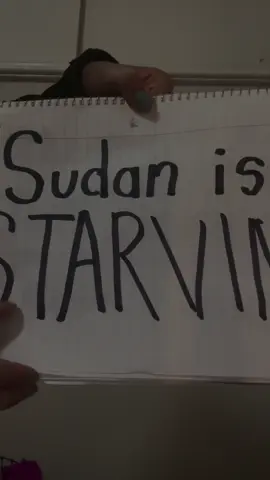 Sudan is
STARVIN